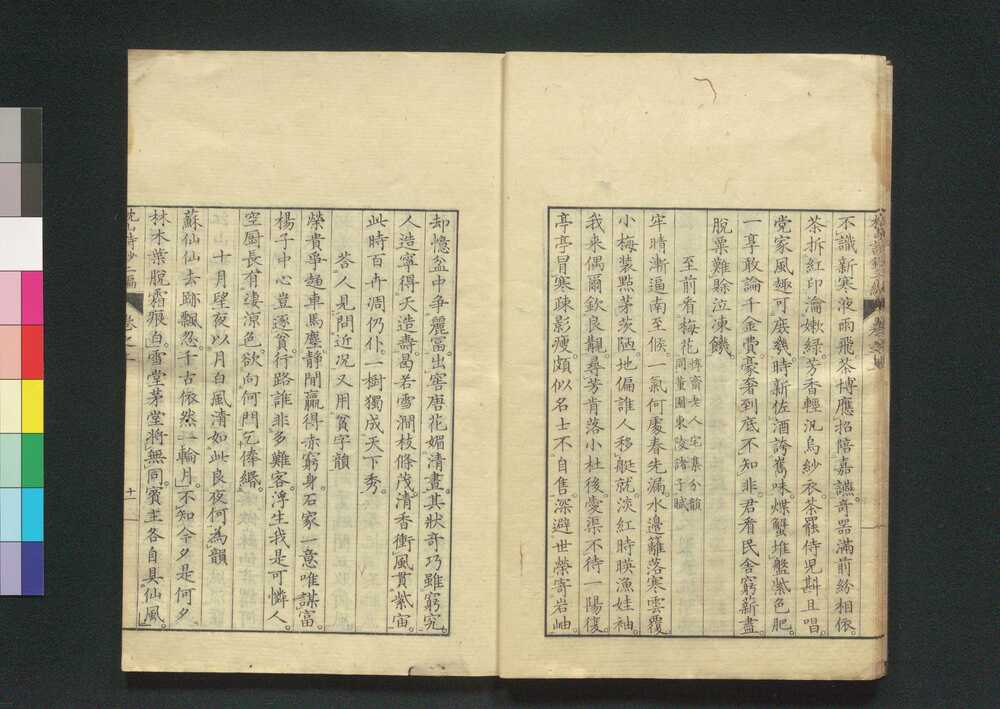 不識新寒液雨飛茶博應招陪嘉讌奇器滿前紛相依
茶拆紅印瀹嫩綠芳香輕汎烏紗衣茶罷侍児斟且唱
党家風趣可庶幾時新佐酒誇寯味煤蟹堆盤紫色肥
一享敢論千金費豪奢到底不知非君看民舍窮薪盡
脫粟難賒泣凍饑
至前看梅花
同董園東陵諸子賦
牢晴漸逼南至候一氣何處春先漏水邊籬落寒雲覆
小梅装點茅茨陋地偏誰人移艇就淡紅時暎漁娃袖
我来偶爾欽良覯尋芳肯落小杜後憂渠不待一陽復
亭亭冒寒疎影瘦頗似名士不自售深避世榮寄岩岫
却憶盆中争麗富出窖唐花媚清晝其狀奇巧雖窮究
人造寧得天造壽曷若雪澗枝條茂清香衝風貫紫宙
此時百卉凋仍仆一樹獨成天下秀
答人見問近况又用貧字韻
榮貴爭趨車馬塵靜閒贏得赤窮身石家一意唯謀富
楊子中心豈逐貧行路誰非多難客浮生我是可憐人
空厨長有凄涼色欲向何門乞俸緡
十月望夜以月白風清如此良夜何為韻
蘇仙仙去跡飄忽千古依然一輪月不知今夕是何夕
林木葉脫霜痕白雪堂茅堂將無同賓主各自具仙風
十一